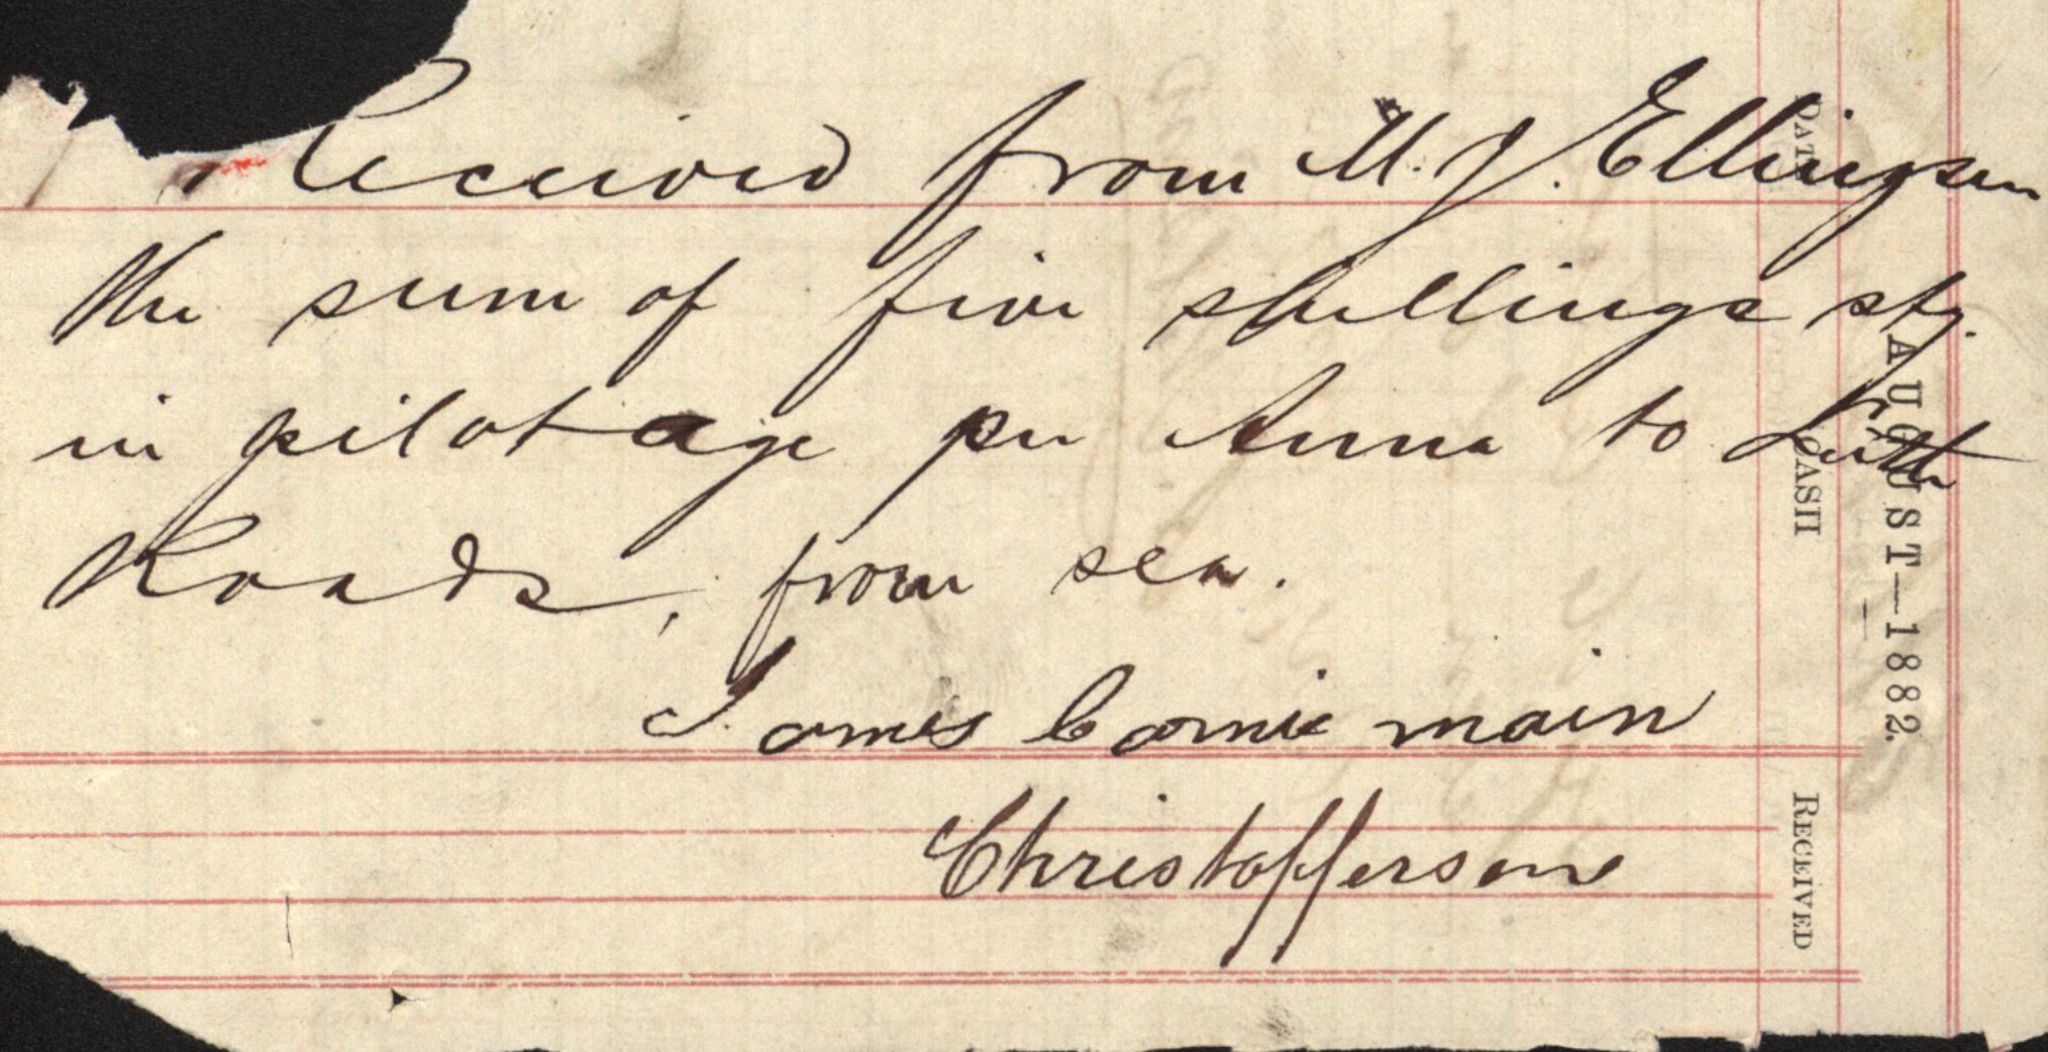 Received from M. J. Ellingsen
the sum of five shillings stg.
in pilotage per Anna to Leith
Roads, from sea.
James Comie main
Christoffersen
DATE
CASH
AUGUST—1882.
RECEIVED